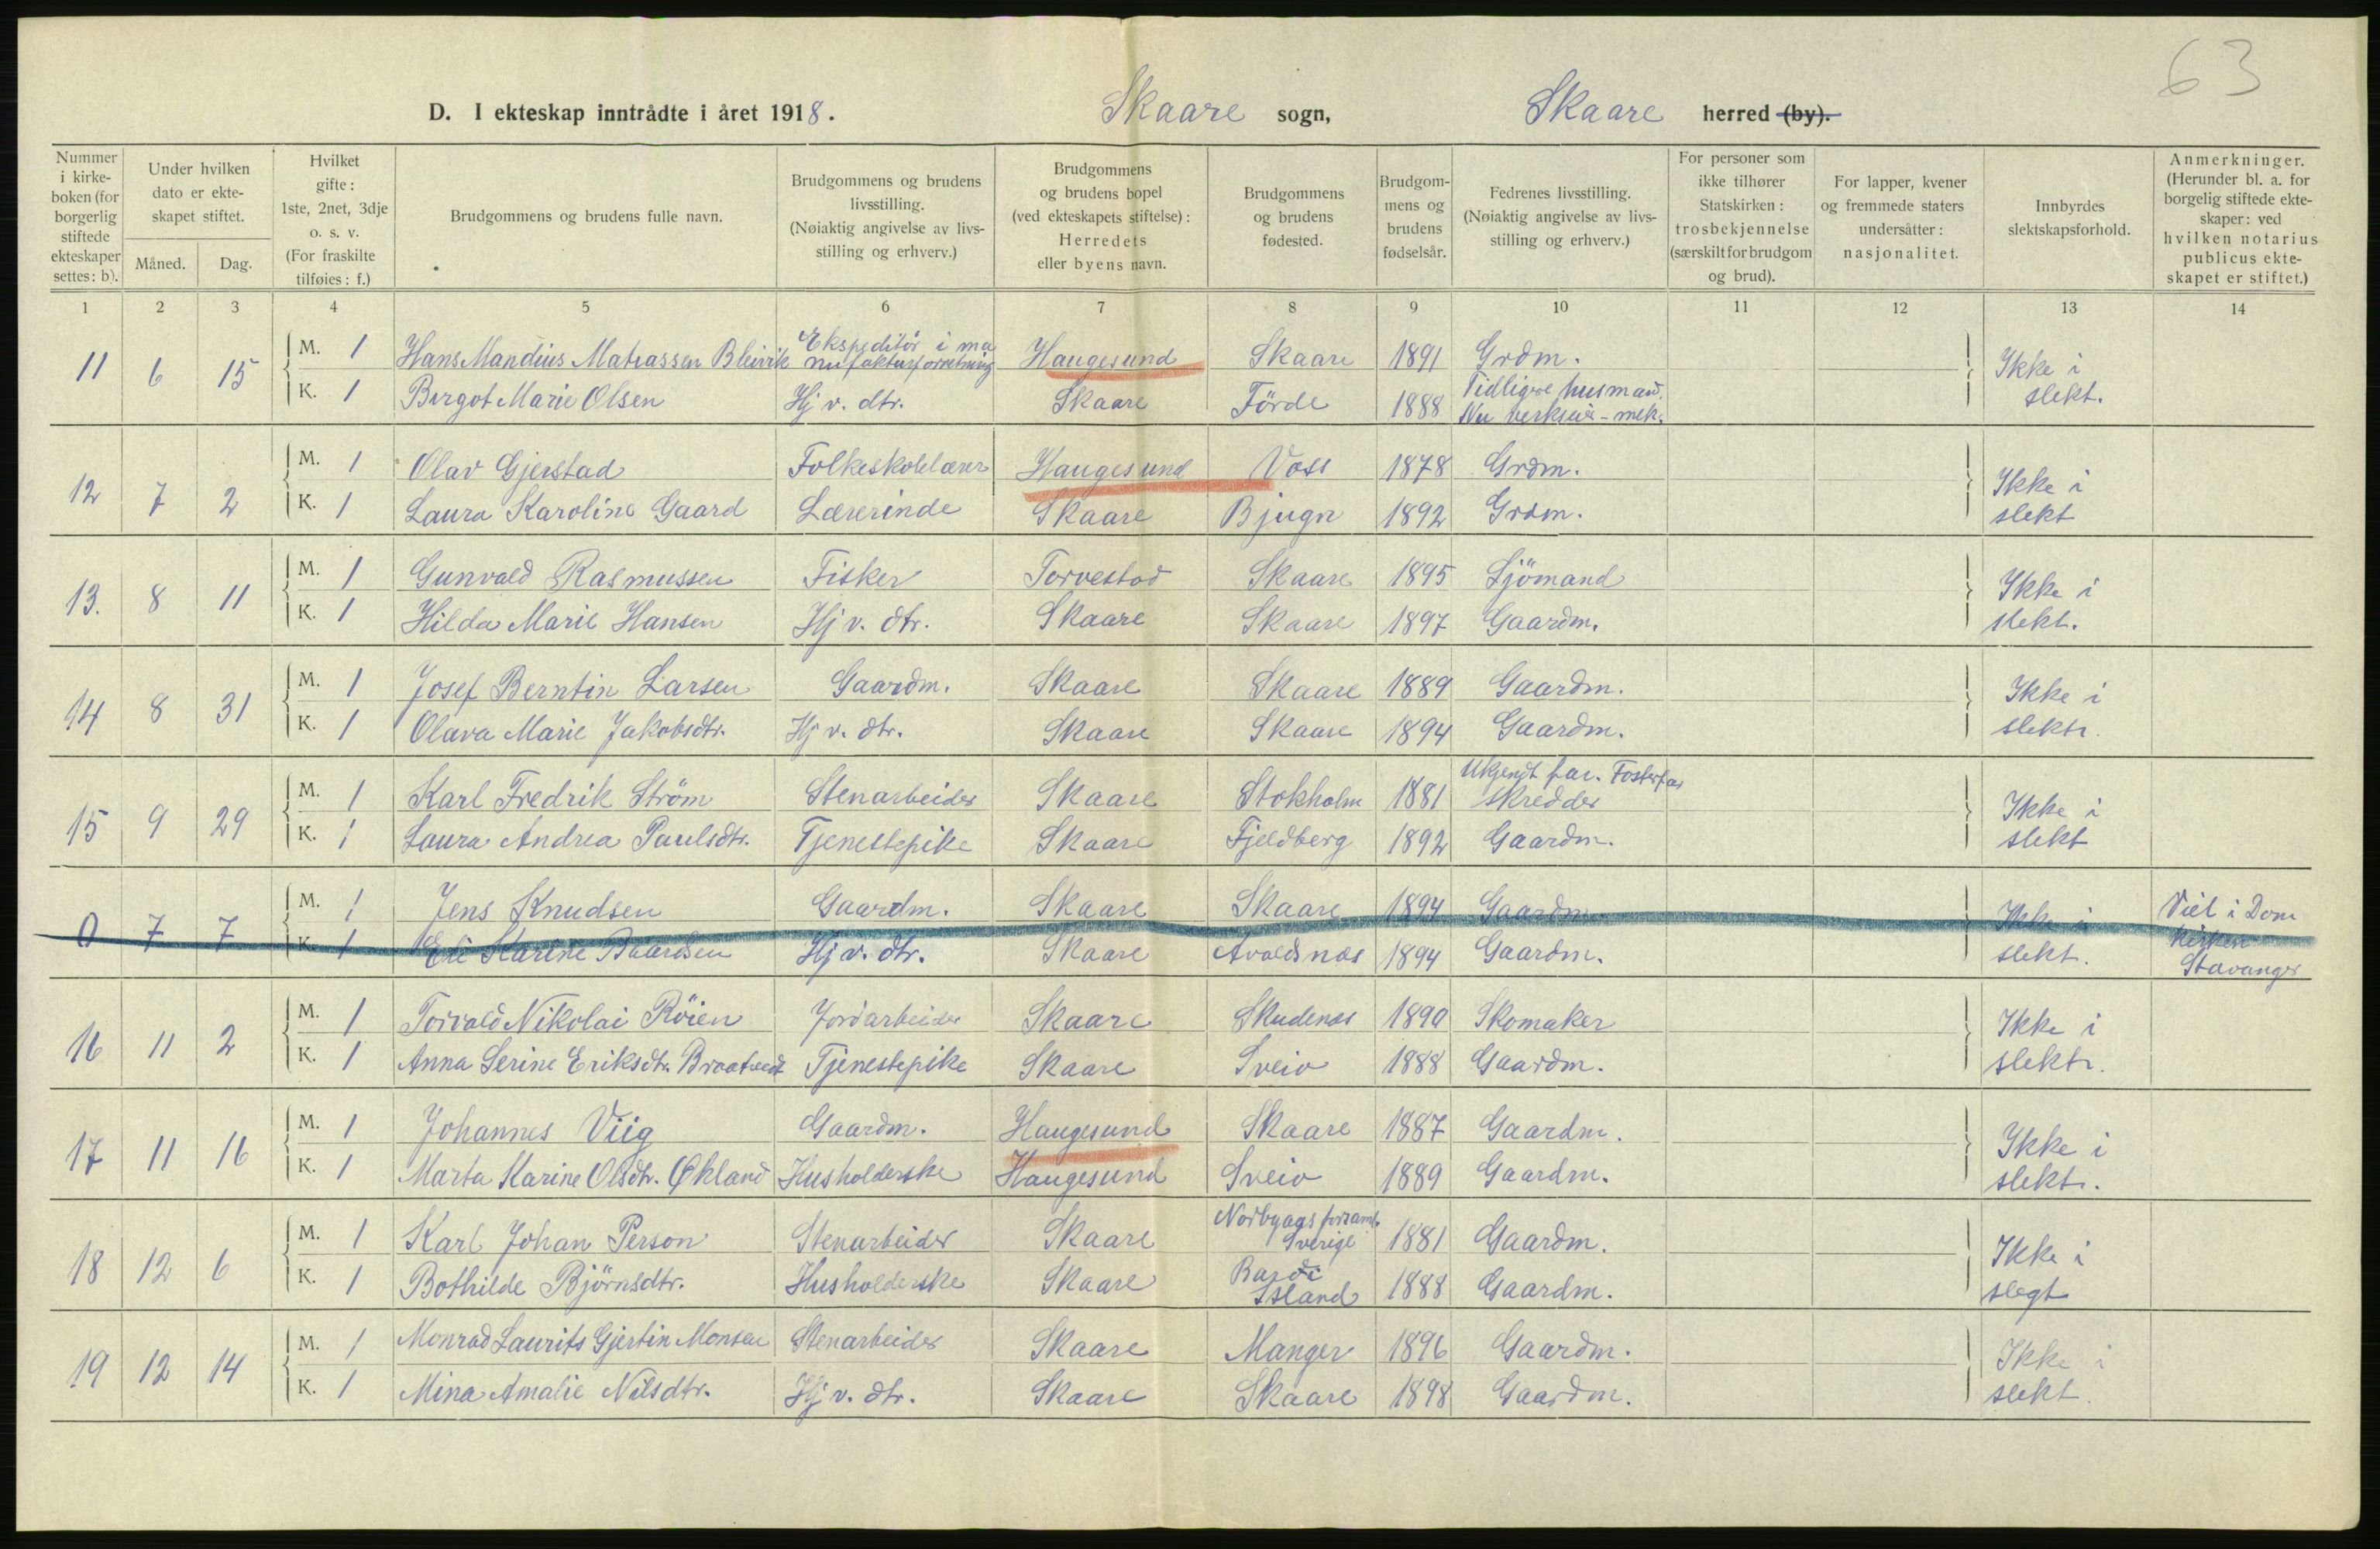 63
D. I ekteskap inntrådte i året 1918. Skaare sogn, Skaare herred (by).
Nummer i kirke-boken (for borgerlig stiftede ekteskaper settes: b).
Under hvilken dato er ekte-skapet stiftet.
Måned. Dag.
Hvilket gifte: 1ste, 2net, 3dje o. s. v. (For fraskilte tilføies: f.)
Brudgommens og brudens fulle navn.
Brudgommens og brudens livsstilling. (Nøiaktig angivelse av livs-stilling og erhverv.)
Brudgommens og brudens bopel (ved ekteskapets stiftelse): Herredets eller byens navn.
Brudgommens og brudens fødested.
Brudgom-mens og brudens fødselsår.
Fedrenes livsstilling. (Nøiaktig angivelse av livs-stilling og erhverv.)
For personer som ikke tilhører Statskirken: trosbekjennelse (særskilt for brudgom og brud).
For lapper, kvener og fremmede staters undersåtter: nasjonalitet.
Innbyrdes slektskapsforhold.
Anmerkninger. (Herunder bl. a. for borgelig stiftede ekte-skaper: ved hvilken notarius publicus ekte-skapet er stiftet.)
1 2 3 4 5 6 7 8 9 10 11 12 13 14
11 6 15 M. 1 Hans Mandius Matiassen Bleivik Ekspeditör i ma nufakturforretning Haugesund Skaare 1891 Grdm. Ikke i
K. 1 Birgot Marie Olsen Hj v. dtr. Skaare Förde 1888 Tidligere husmand. Nu verkseier-mek. slekt.
12 7 2 M. 1 Olav Gjerstad Folkeskolelærer Haugesund Voss 1878 Grdm. Ikke i
K. 1 Laura Karoline Gaard Lærerinde Skaare Bjugn 1892 Grdm. slekt
13. 8 11 M. 1 Gunvald Rasmussen Fisker Torvestad Skaare 1895 Sjömand Ikke i
K. 1 Hilda Marie Hansen Hj v. dtr. Skaare Skaare 1897 Gaardm. slekt.
14 8 31 M. 1 Josef Berntin Larsen Gaardm. Skaare Skaare 1889 Gaardm. Ikke i
K. 1 Olava Marie Jakobsdtr. Hj v. dtr. Skaare Skaare 1894 Gaardm. slekt.
15 9 29 M. 1 Karl Fredrik Ström Stenarbeider Skaare Stokholm 1881 Ukjendt far. Fosterfar skredder Ikke i
K. 1 Laura Andrea Paulsdtr. Tjenestepike Skaare Fjeldberg 1892 Gaardm. slekt
0 7 7 M. 1 Jens Knudsen Gaardm. Skaare Skaare 1894 Gaardm. Ikke i Viet i Dom
K. 1 Eli Karine Baardsen Hj v. dtr. Skaare Avaldsnes 1894 Gaardm. slekt. kirken Stavanger
16 11 2 M. 1 Torvald Nikolai Röien Jordarbeider Skaare Skudenes 1890 Skomaker Ikke i
K. 1 Anna Serine Eriksdtr. Braatvedt Tjenestepike Skaare Sveio 1888 Gaardm. slekt.
17 11 16 M. 1 Johannes Viig Gaardm. Haugesund Skaare 1887 Gaardm. Ikke i
K. 1 Marta Karine Olsdtr. Økland Husholderske Haugesund Sveio 1889 Gaardm. slekt.
18 12 6 M. 1 Karl Johan Person Stenarbeider Skaare Sverige 1881 Gaardm. Ikke i
K. 1 Bothilde Björnsdtr. Husholderske Skaare Island 1888 Gaardm. slegt
19 12 14 M. 1 Monrad Laurits Gjertin Monsen Stenarbeider Skaare Manger 1896 Gaardm. Ikke i
K. 1 Mina Amalie Nilsdtr. Hj v. dtr. Skaare Skaare 1898 Gaardm. slekt.